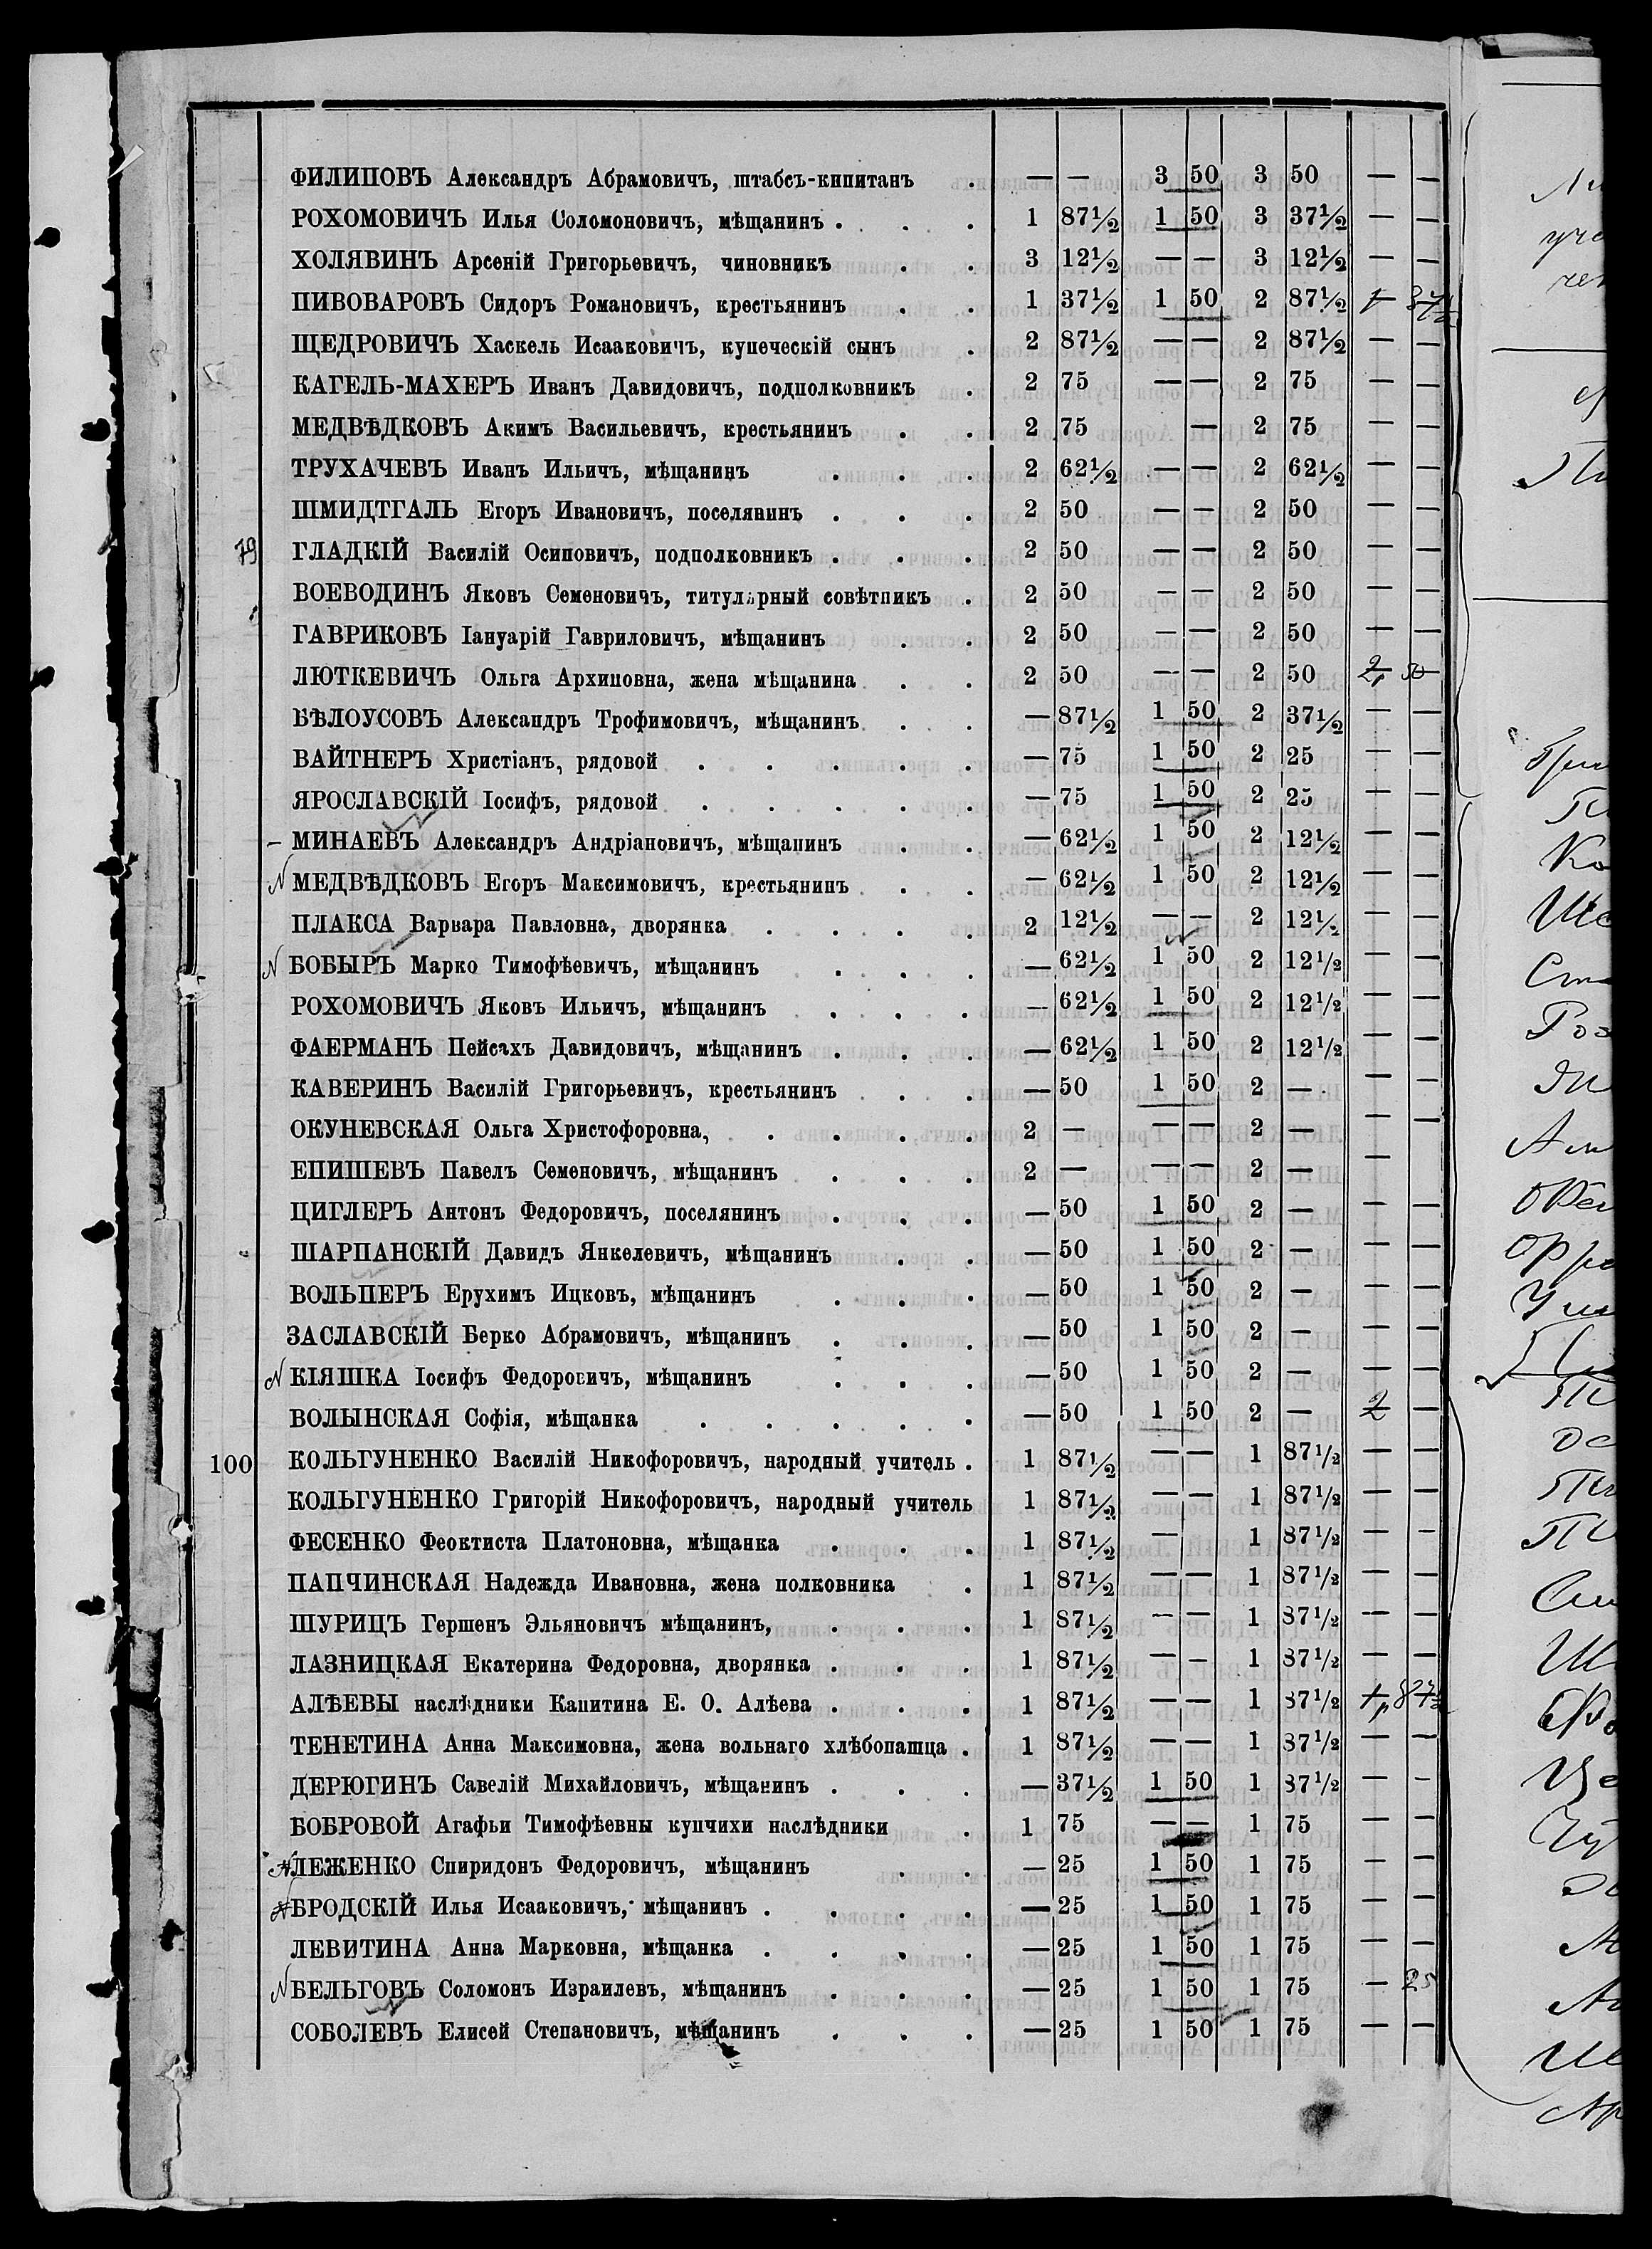 ФИЛИПОВЪ Александръ Абрамовичъ, штабсъ-кипитанъ . — — 3 50 3 50 — —
РОХОМОВИЧЪ Илья Соломоновичъ, мѣщанинъ . . . 1 87½ 1 50 3 37½ — —
ХОЛЯВИНЪ Арсеній Григорьевичъ, чиновникъ . . 3 12½ — — 3 12½ — —
ПИВОВАРОВЪ Сидоръ Романовичъ, крестьянинъ . . 1 37½ 1 50 2 87½ 1 37½
ЩЕДРОВИЧЪ Хаскель Исааковичъ, купеческій сынъ . 2 87½ — — 2 87½ — —
КАГЕЛЬ-МАХЕРЪ Иванъ Давидовичъ, подполковникъ . 2 75 — — 2 75 — —
МЕДВѢДКОВЪ Акимъ Васильевичъ, крестьянинъ . . 2 75 — 2 75 — —
ТРУХАЧЕВЪ Иванъ Ильичъ, мѣщанинъ . . . 2 62½ — — 2 62½ — —
ШМИДТГАЛЬ Егоръ Ивановичъ, поселянинъ . . . 2 50 — — 2 50 — —
79 ГЛАДКІЙ Василій Осиповичъ, подполковникъ . . . 2 50 — — 2 50 — —
ВОЕВОДИНЪ Яковъ Семеновичъ, титулярный совѣтникъ . 2 50 — — 2 50 — —
ГАВРИКОВЪ Іануарій Гавриловичъ, мѣщанинъ . . 2 50 — — 2 50 — —
ЛЮТКЕВИЧЪ Ольга Архиповна, жена мѣщанина . . 2 50 — — 2 50 2 50
БѢЛОУСОВЪ Александръ Трофимовичъ, мѣщанинъ . . — 87½ 1 50 2 37½ — —
ВАЙТНЕРЪ Христіанъ, рядовой . . . . . — 75 1 50 2 25 — —
ЯРОСЛАВСКІЙ Іосифъ, рядовой . . . . . — 75 1 50 2 25 — —
– МИНАЕВЪ Александръ Андріановичъ, мѣщанинъ . . — 62½ 1 50 2 12½ — —
N МЕДВѢДКОВЪ Егоръ Максимовичъ, крестьянинъ . . — 62½ 1 50 2 12½ — —
ПЛАКСА Варвара Павловна, дворянка . . . . 2 12½ — — 2 12½ — —
N БОБЫРЪ Марко Тимофѣевичъ, мѣщанинъ . . . — 62½ 1 50 2 12½ — —
РОХОМОВИЧЪ Яковъ Ильичъ, мѣщанинъ . . . — 62½ 1 50 2 12½ — —
ФАЕРМАНЪ Пейсахъ Давидовичъ, мѣщанинъ . . . — 62½ 1 50 2 12½ — —
КАВЕРИНЪ Василій Григорьевичъ, крестьянинъ . . — 50 1 50 2 — — —
ОКУНЕВСКАЯ Ольга Христофоровна, . . . . 2 — — — 2 — — —
ЕПИШЕВЪ Павелъ Семеновичъ, мѣщанинъ . . . 2 — — — 2 — —
ЦИГЛЕРЪ Антонъ Федоровичъ, поселянинъ . . . — 50 1 50 2 — — —
ШАРПАНСКІЙ Давидъ Янкелевичъ, мѣщанинъ . . — 50 1 50 2 — — —
ВОЛЬПЕРЪ Ерухимъ Ицковъ, мѣщанинъ . . . — 50 1 50 2 — — —
ЗАСЛАВСКІЙ Берко Абрамовичъ, мѣщанинъ . . . — 50 1 50 2 — — —
N КІЯШКА Іосифъ Федоровичъ, мѣщанинъ . . . — 50 1 50 2 — — —
ВОЛЫНСКАЯ Софія, мѣщанка . . . . . — 50 1 50 2 — 2 —
100 КОЛЬГУНЕНКО Василій Никофоровичъ, народный учитель . 1 87½ — — 1 87½ — —
КОЛЬГУНЕНКО Григорій Никофоровичъ, народный учитель 1 87½ — — 1 87½ — —
ФЕСЕНКО Феоктиста Платоновна, мѣщанка . . . 1 87½ — 1 87½ — —
ПАПЧИНСКАЯ Надежда Ивановна, жена полковника . 1 87½ — — 1 87½ — —
ШУРИЦЪ Гершенъ Эльяновичъ мѣщанинъ, . . . 1 87½ — — 1 87½ — —
ЛАЗНИЦКАЯ Екатерина Федоровна, дворянка . . . 1 87½ — — 1 87½ — —
АЛѢЕВЫ наслѣдники Капитина Е. О. Алѣева . . . 1 87½ — — 1 87½ 1 87½
ТЕНЕТИНА Анна Максимовна, жена вольнаго хлѣбопашца . 1 87½ — — 1 87½ — —
ДЕРЮГИНЪ Савелій Михайловичъ, мѣщанинъ . . . — 37½ 1 50 1 87½ — —
БОБРОВОЙ Агафьи Тимофѣевны купчихи наслѣдники . 1 75 — — 1 75 — —
ЛЕЖЕНКО Спиридонъ Федоровичъ, мѣщанинъ . . — 25 1 50 1 75 — —
БРОДСКІЙ Илья Исааковичъ, мѣщанинъ . . . . — 25 1 50 1 75 — —
ЛЕВИТИНА Анна Марковна, мѣщанка . . . . — 25 1 50 1 75 — —
N БЕЛЬГОВЪ Соломонъ Израилевъ, мѣщанинъ . . . — 25 1 50 1 75 — 25
СОБОЛЕВЪ Елисей Степановичъ, мѣщанинъ . . . — 25 1 50 1 75 — —